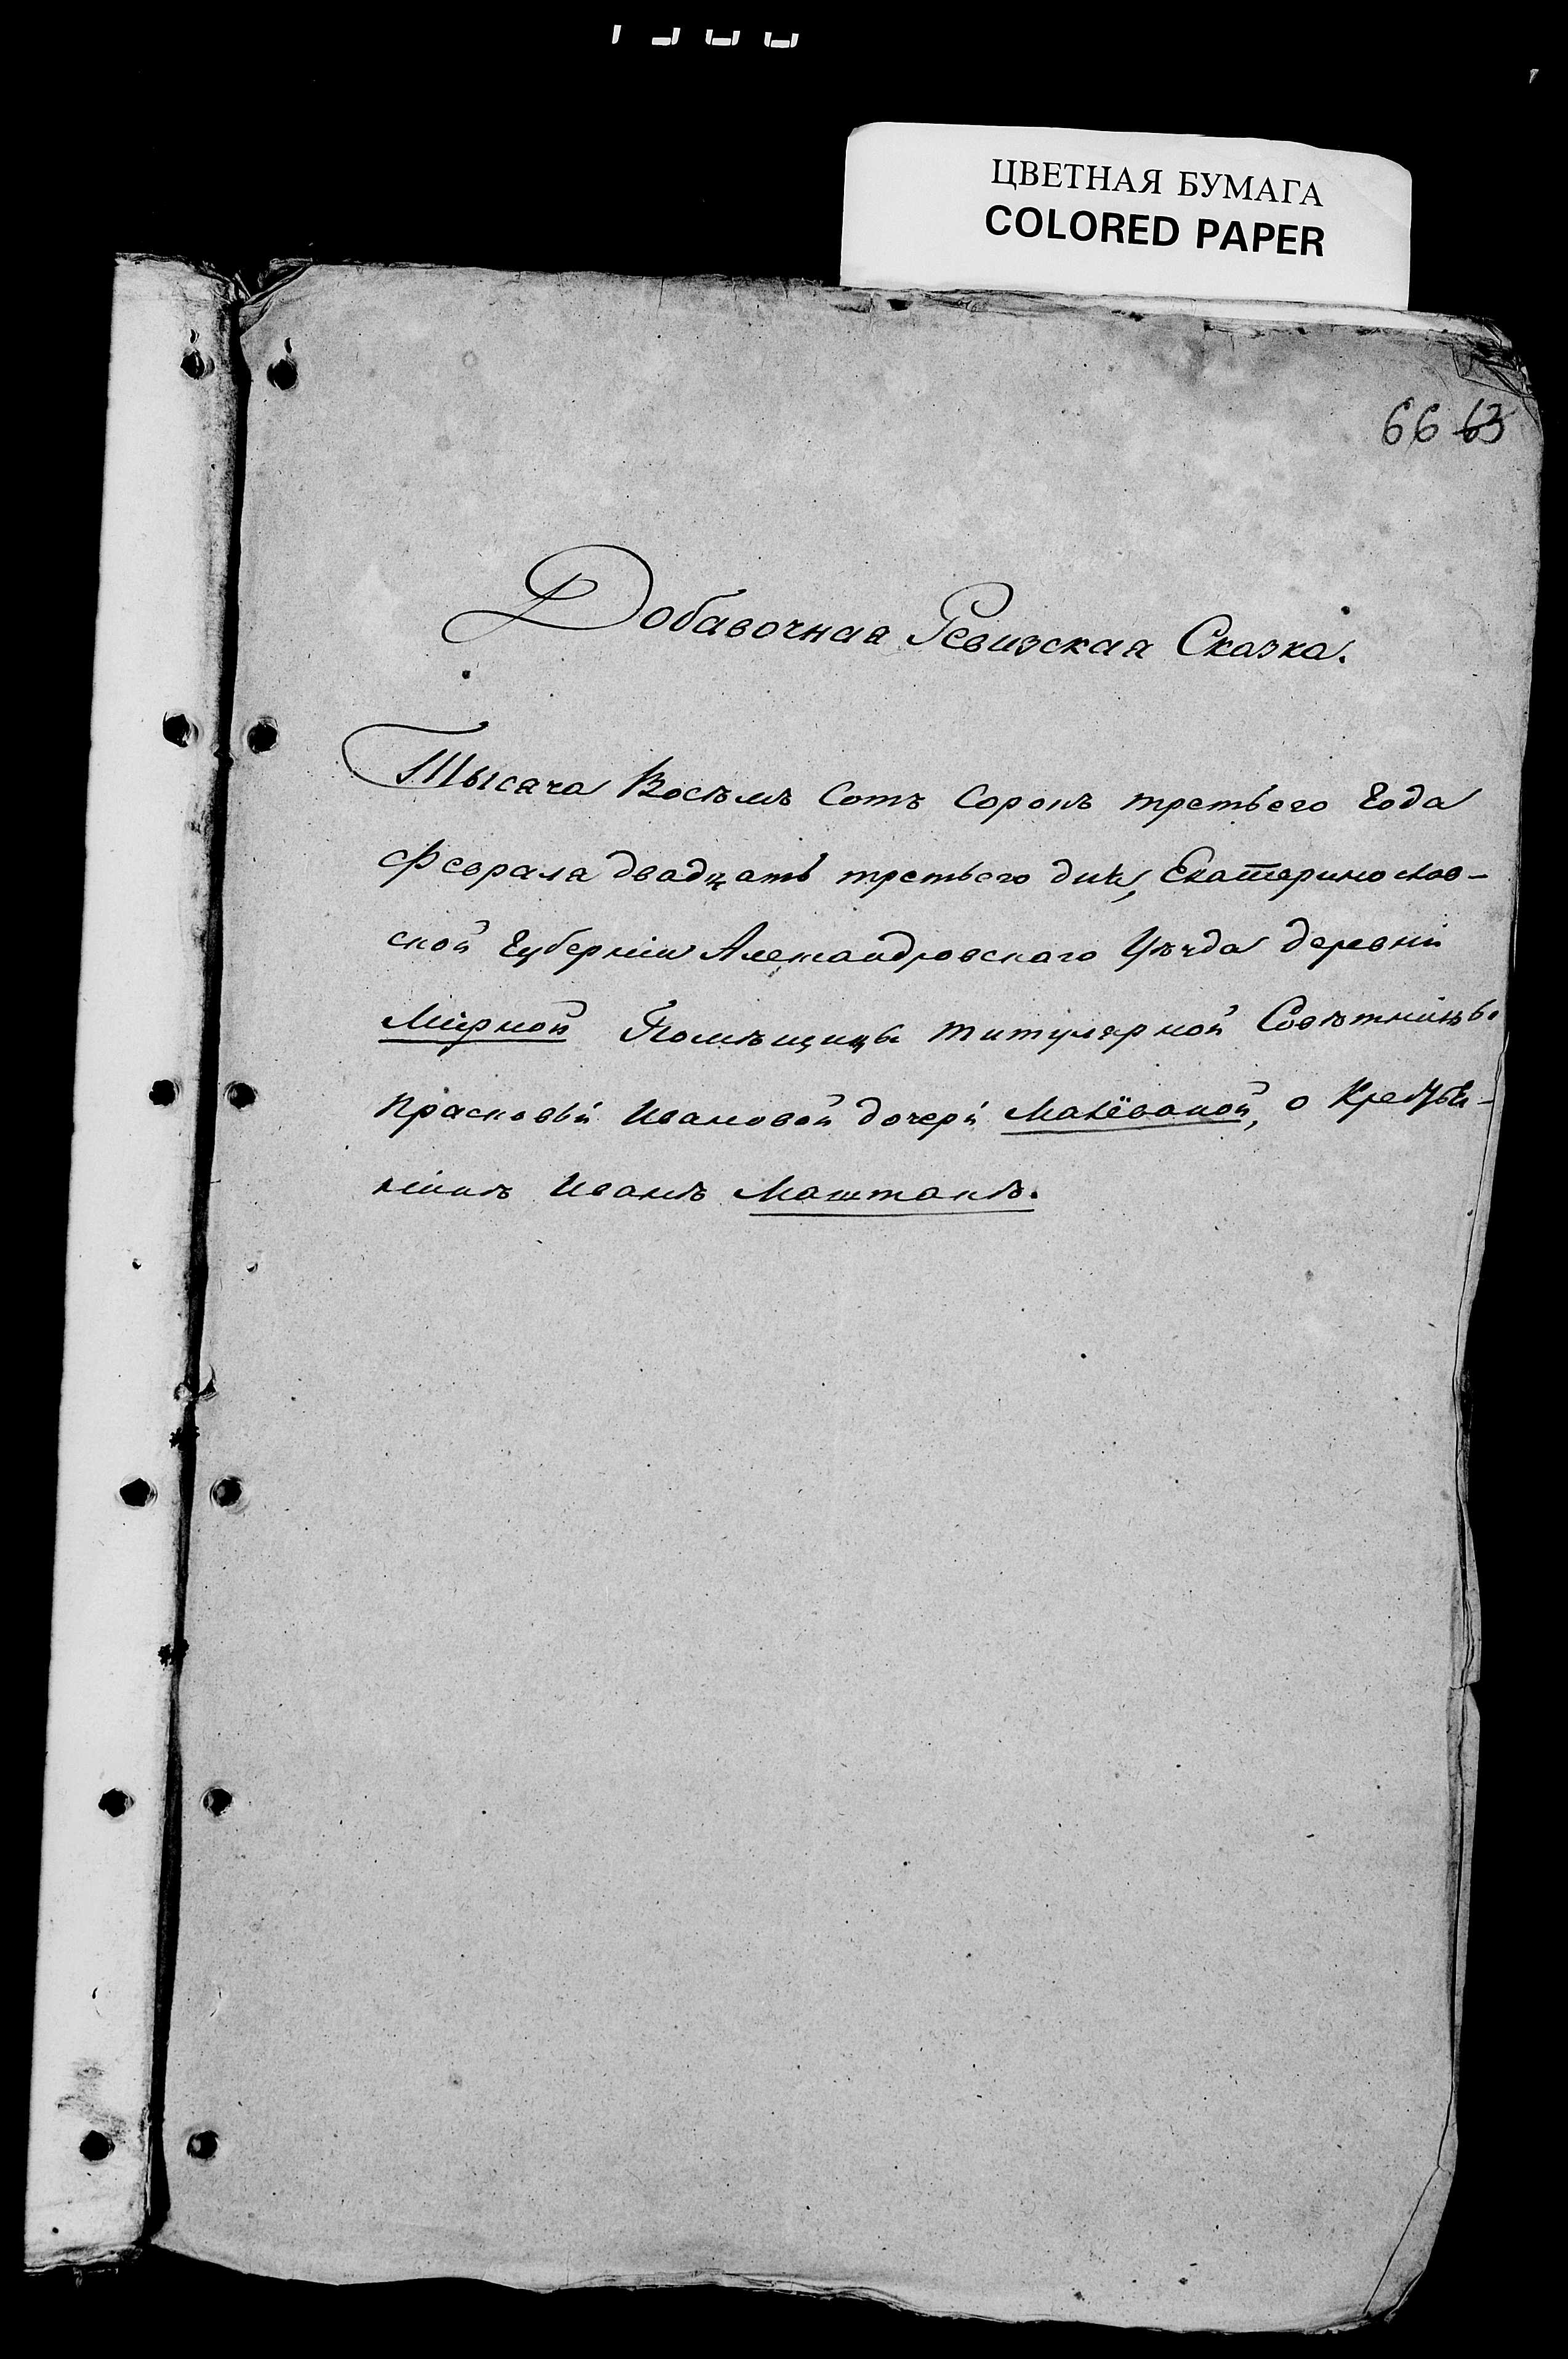 ЦВЕТНАЯ БУМАГА
COLORED PAPER
66 63
Добавочная Ревизская Сказка.
Тысяча Восѣмъ Сотъ Сорокъ третьего Года
Февраля двадцать третьего дня, Екатеринослав-
ской Губерніи Александровскаго Уѣзда деревни
Мирной Помѣщицы титулярной Совѣтницы
Прасковьи Ивановой дочери Макѣвоной, о Крестья-
нинѣ Иванѣ Маштакѣ.